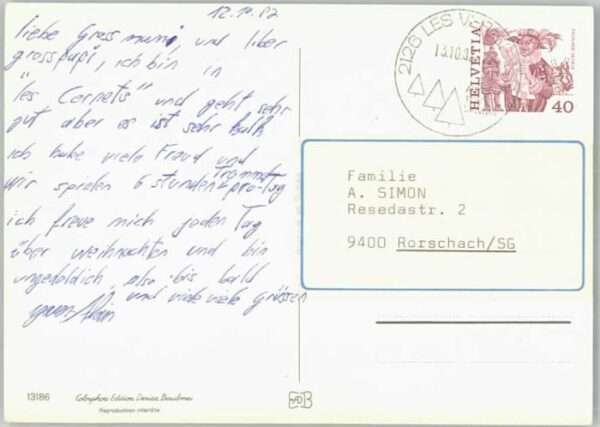 12.10.82
liebe Grossmami, und liber
grosspapi, ich bin in
"les Cernets" und geht sehr
gut aber es ist sehr kalt
ich habe viele Freud und
wir spielen 6 stunden Trommel
pro-Tag
ich freue mich jeden Tag
über weihnachten und bin
ungedoldich, also bis bald
und viele viele grüssen
Alain
2126 LES VER
13.10.8
HELVETIA
40
Familie
A. SIMON
Resedastr. 2
9400 Rorschach/SG
13186
Colorphoto Edition Denise Beaubrun
Reproduction interdite